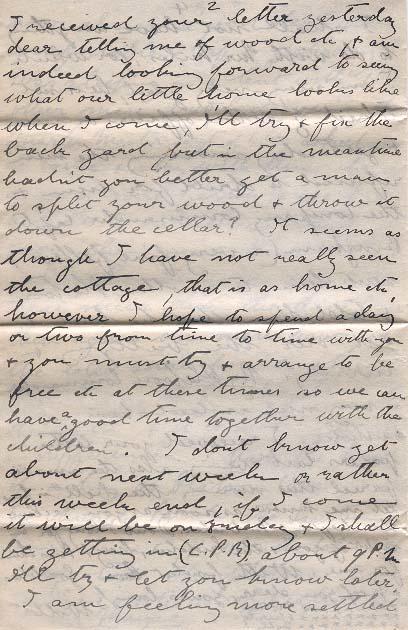 2
I received your letter yesterday
dear telling me of wood etc, & am
indeed looking forward to seeing
what our little home looks like
when I come, I'll try & fix the
back yard but in the meantime
hadn't you better get a man
to split your wood & throw it
down the cellar? It seems as
though I have not really seen
the cottage, that is as home etc,
however I hope to spend a day
or two from time to time with you
& you must try & arrange to be
free etc at these times so we can
have a good time together with the
children. I don't know yet
about next week or rather
this week end, if I come
it will be on Friday & I shall
be getting in (C.P.R) about 9 P.M
I'll try & let you know later.
I am feeling more settled